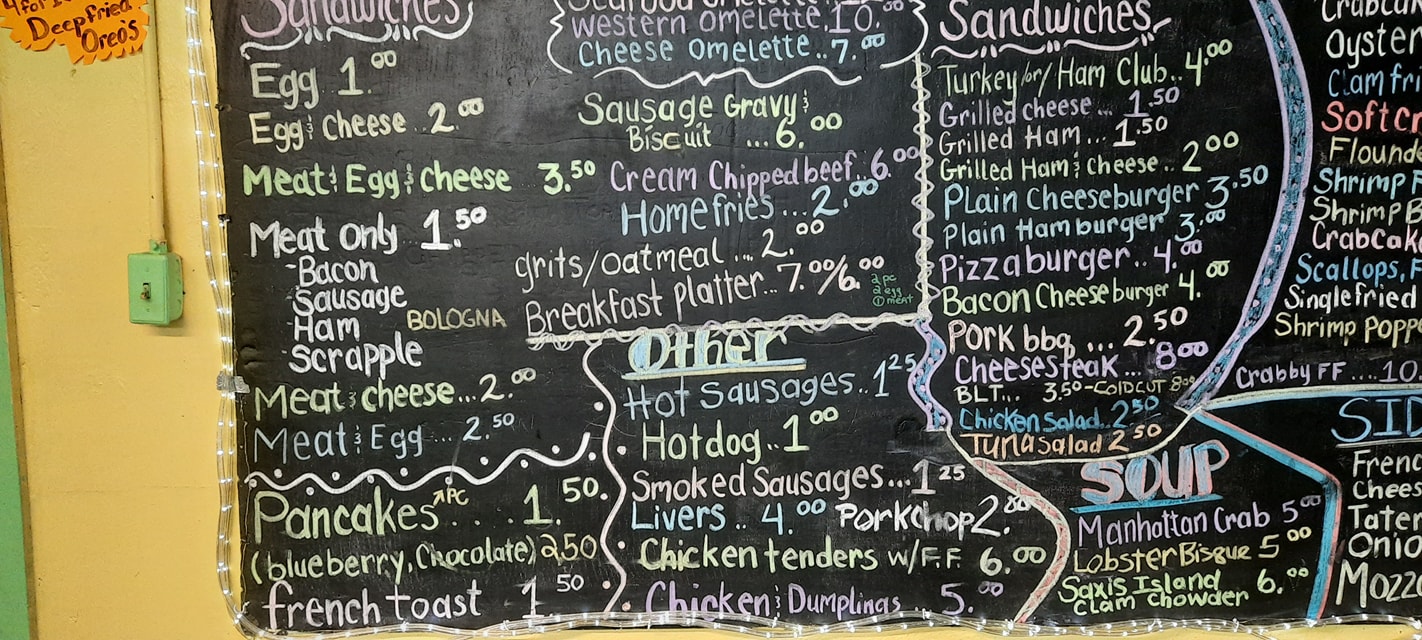 4 for
Deep Fried
Oreo's
Sandwiches
Egg 1.00
Egg & Cheese .. 2.00
Meat & Egg & Cheese 3.50
Meat only 1.50
-Bacon
-Sausage
-Ham
-Scrapple
BOLOGNA
Meat & cheese... 2.00
Meat & Egg ... 2.50
Pancakes . . . . 1.50.
PC
(blueberry, Chocolate) 2.50
french toast 1.50
Seafood Omelette
western omelette. 10.00
Cheese Omelette .. 7.00
Sausage Gravy &
Biscuit ... 6.00
Cream Chipped beef.. 6.00
Homefries ... 2.00
grits/oatmeal ... 2.00
Breakfast platter... 7.00/6.00
2 pc
2 egg
1 meat
Other
Hot Sausages.. 1.25
Hotdog.. 1.00
Smoked Sausages... 1.25
Livers .. 4.00 Porkchop 2.00
Chicken tenders w/F.F. 6.00
Chicken & Dumplings .. 5.00
Sandwiches
Turkey/or/Ham Club.. 4.00
Grilled cheese ... 1.50
Grilled Ham... 1.50
Grilled Ham & Cheese .. 2.00
Plain Cheeseburger 3.50
Plain Hamburger 3.00
Pizzaburger.. 4.00
Bacon Cheeseburger 4.00
Pork bbq ... 2.50
Cheesesteak... 8.00
BLT... 3.50 - COLDCUT 8.00
Chicken Salad.. 2.50
Tuna Salad 2.50
SOUP
Manhattan Crab 5.00
Lobster Bisque 5.00
Saxis Island
Clam Chowder 6.00
Oyster
Clam fri
Soft Cr
Flounde
Shrimp F
Shrimp B
Crabcak
Scallops, F
Single fried
Shrimp Popp
Crabby FF .... 10.
SID
Frenc
Chees
Tater
Onio
Mozz